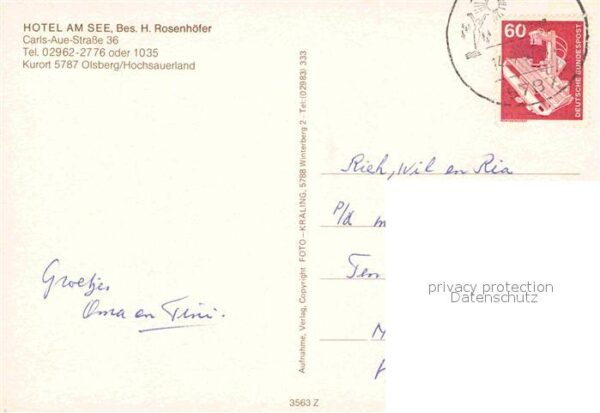 HOTEL AM SEE, Bes. H. Rosenhöfer
Carls-Aue-Straße 36
Tel. 02962-2776 oder 1035
Kurort 5787 Olsberg/Hochsauerland
Groetjes
Oma en Tini.
Aufnahme, Verlag, Copyright FOTO-KRALING, 5788 Winterberg 2 · Tel: (02983) 333
3563 Z
60
DEUTSCHE BUNDESPOST
Rieh, Wil en Ria
P/a m
Ten
M
privacy protection
Datenschutz